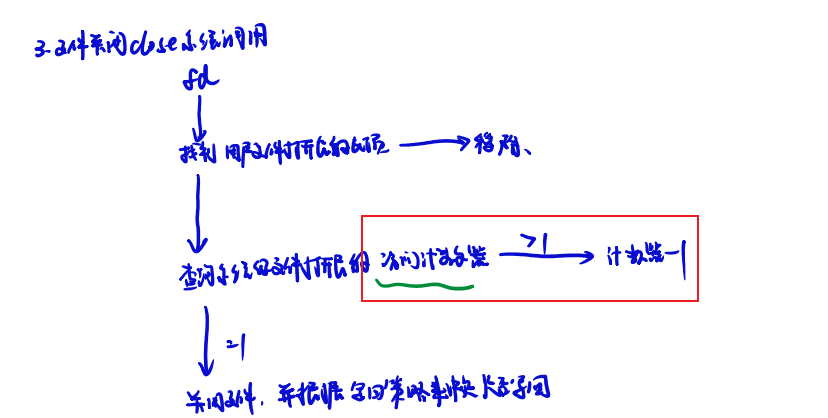 3. 文件关闭close系统调用
fd
找到 用户文件打开表的表项
移除、
查询系统级文件打开表的 访问计数器
>1
计数器-1
=1
关闭文件, 并根据 空闲策略 空闲